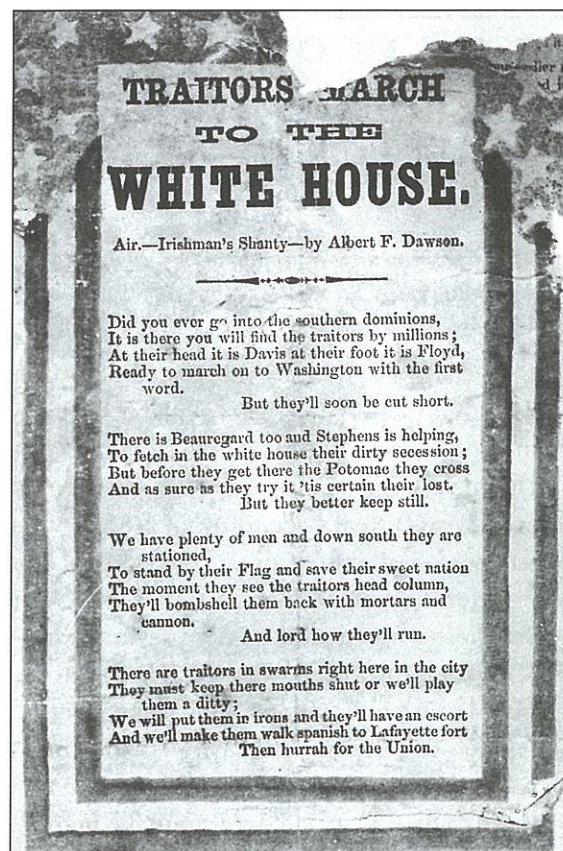 No
TRAITORS MARCH
TO THE
WHITE HOUSE.
Air.—Irishman's Shanty—by Albert F. Dawson.
Did you ever go into the southern dominions,
It is there you will find the traitors by millions;
At their head it is Davis at their foot it is Floyd,
Ready to march on to Washington with the first
word.
But they'll soon be cut short.
There is Beauregard too and Stephens is helping,
To fetch in the white house their dirty secession;
But before they get there the Potomac they cross
And as sure as they try it 'tis certain their lost.
But they better keep still.
We have plenty of men and down south they are
stationed,
To stand by their Flag and save their sweet nation
The moment they see the traitors head column,
They'll bombshell them back with mortars and
cannon.
And lord how they'll run.
There are traitors in swarms right here in the city
They must keep there mouths shut or we'll play
them a ditty;
We will put them in irons and they'll have an escort
And we'll make them walk spanish to Lafayette fort
Then hurrah for the Union.